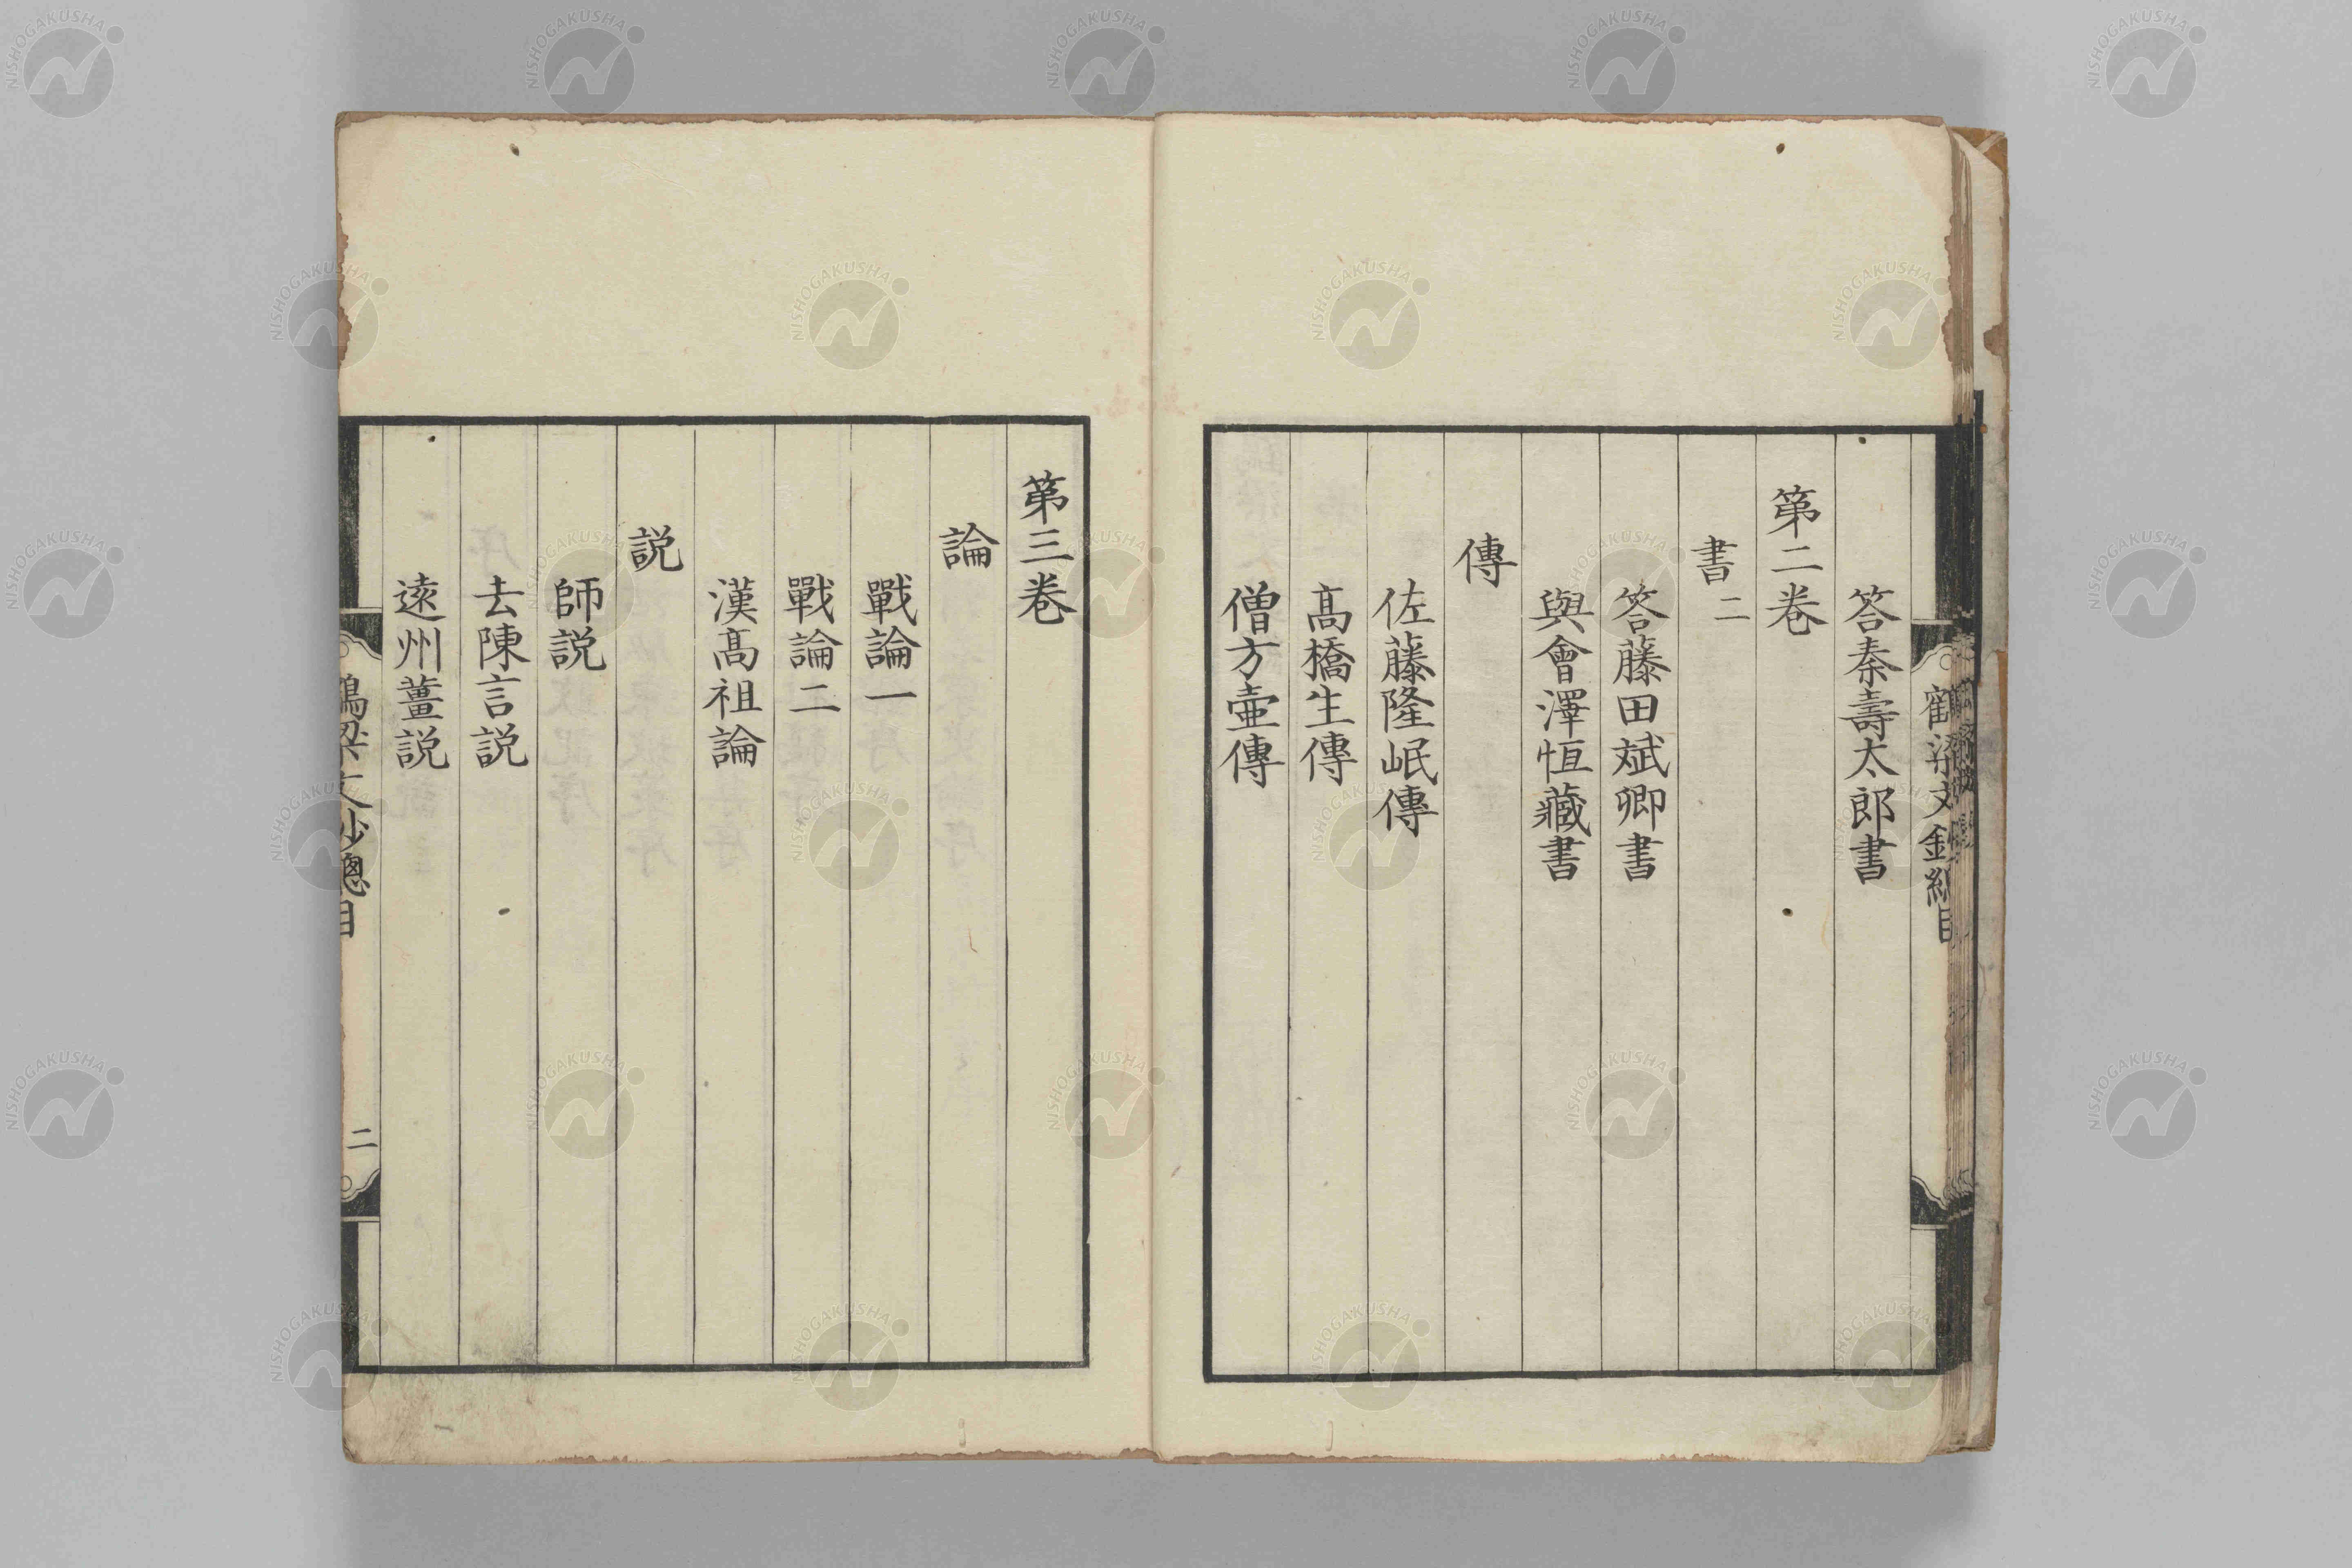 答秦壽太郎書
第二卷
書二
答藤田斌卿書
與會澤恒藏書
傳
佐藤隆岷傳
髙橋生傳
僧方壷傳
第三卷
論
戰論一
戰論二
漢髙祖論
説
師説
去陳言説
遠州薑説
鶴梁文鈔總目
二
NISHOGAKUSHA